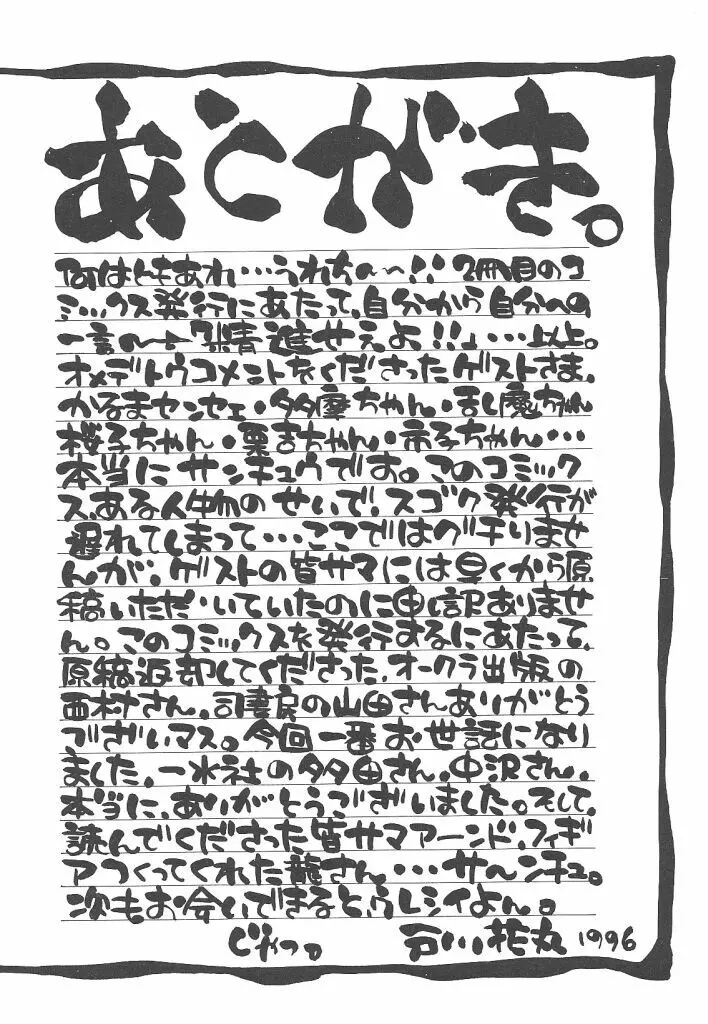 あとがき。
何はともあれ…うれちぃ〜!! 2冊目のコ
ミックス発行にあたって、自分から自分への
一言の〜「精進せぇよ!!」…以上。
オメデトウコメントをくださったゲストさま。
かるまセンセェ・多摩ちゃん・まし魔ちゃん
桜子ちゃん・栗吉ちゃん・市子ちゃん…
本当にサンキュウです。このコミック
ス、ある人物のせいで、スゴク発行が
遅れてしまって…ここではグチりませ
んが、ゲストの皆サマには早くから原
稿いただいていたのに申し訳ありませ
ん。このコミックスを発行するにあたって、
原稿返却してくださった、オークラ出版の
西村さん。司書房の山田さんありがとう
ございマス。今回一番お世話になり
ました、一水社の多田さん。中沢さん。
本当に、ありがとうございました。そして、
読んでくださった皆サマアーンド、フィギ
アつくってくれた龍さん…サーンチュ。
次もお会いできると、うレシイよん。
じゃっ。 戸川花丸 1996